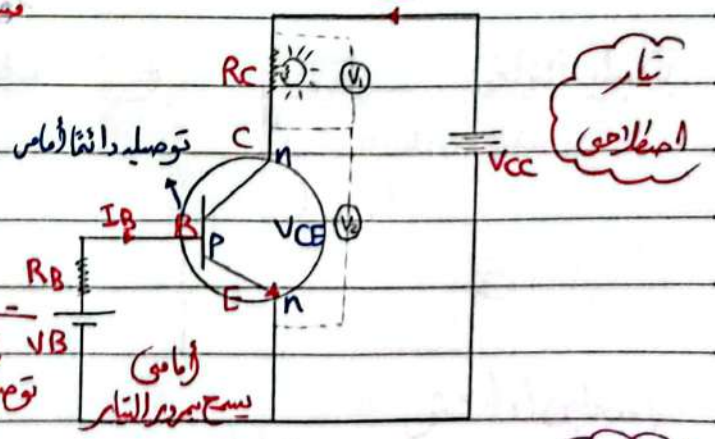 تيار
اصطلاحى
RC
V₁
C
n
توصيله دائمًا أمامى
VCC
IB
B
P
VCE
V₂
RB
E
n
VB
أمامى
يسمح بمرور التيار